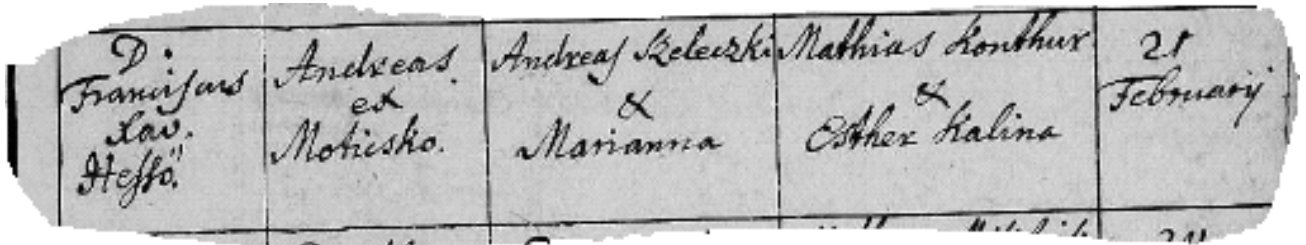 D:
Franciscus
Xav.
Hessö.
Andreas
ex
Moticsko.
Andreas Szeleczki
&
Marianna
Mathias Konthur
&
Esther Kalina
21
Februarij